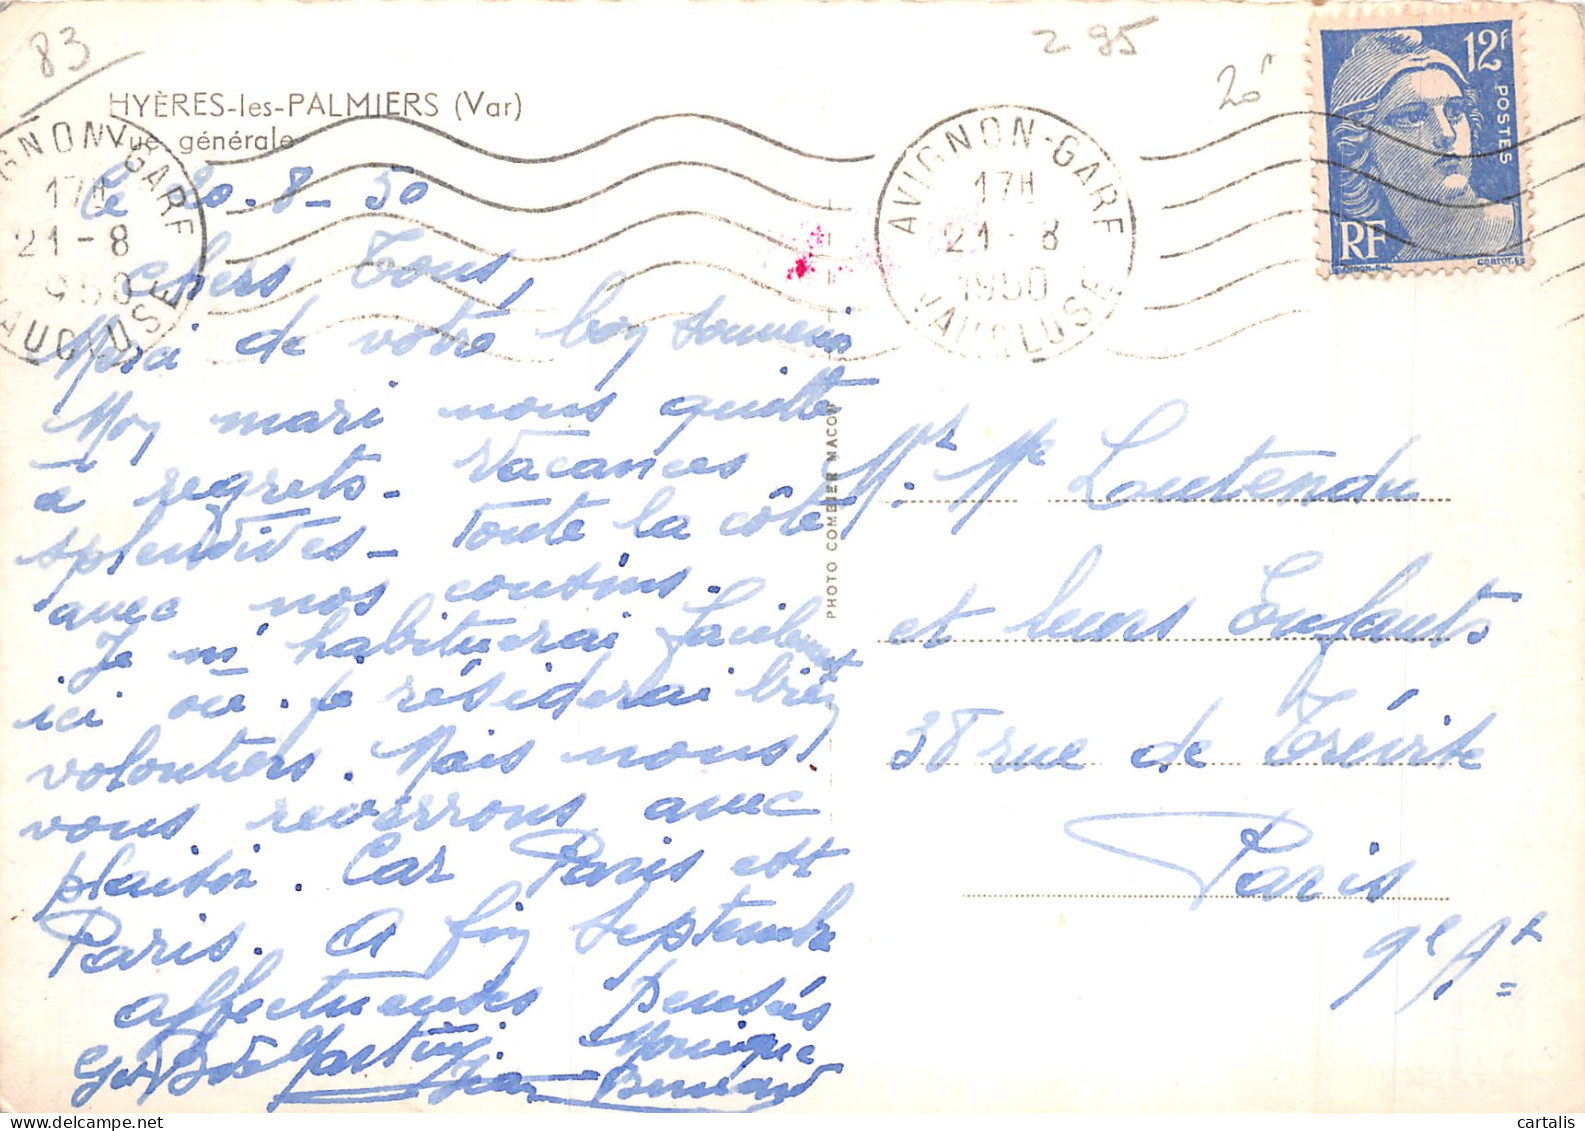 83
2 95
20F
HYÈRES-les-PALMIERS (Var)
Vue générale
AVIGNON-GARE
17H
21-8
1950
VAUCLUSE
AVIGNON-GARE
17H
21-8
1950
VAUCLUSE
12F
POSTES
RF
CORTOT.SC
PHOTO COMBIER MACON
le 20-8-50
chers Tous,
Merci de votre bon souvenir
Mon mari nous quitte
à regrets- Vacances
splendides- Toute la côte
avec nos cousins.
Je m'habituerai facilement
ici où je résiderai bien
volontiers. Mais nous
vous reverrons avec
plaisir. Car Paris est
Paris. A fin septembre
affectueuses Pensées
Monique
Jean Bernard
Mr. Me Loutendu
et leurs Enfants
38 rue de Trévise
Paris
9e At
cartalis
delcampe.net